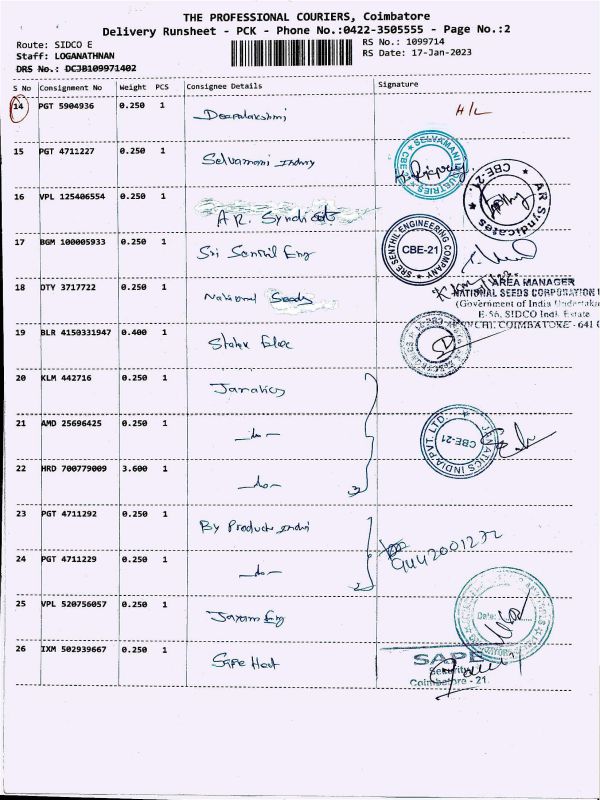 THE PROFESSIONAL COURIERS, Coimbatore
Delivery Runsheet - PCK - Phone No.:0422-3505555 - Page No.:2
Route: SIDCO E
Staff: LOGANATHNAN
DRS No.: DCJB109971402
RS No.: 1099714
RS Date: 17-Jan-2023
S No Consignment No Weight PCS Consignee Details Signature
14 PGT 5904936 0.250 1 Deepalakshmi H/L
15 PGT 4711227 0.250 1 Selvamani SELVAMANI INDUSTRIES CBE
16 VPL 125406554 0.250 1 A.R. Syndicate AR Syndicates CBE-21.
17 BGM 100005933 0.250 1 Sri Senthil Eng SRE SENTHIL ENGINEERING COMPANY CBE-21
18 OTY 3717722 0.250 1 National Seeds
AREA MANAGER
NATIONAL SEEDS CORPORATION
(Government of India Undertaking
E-56, SIDCO Indl. Estate
COIMBATORE - 641 0
19 BLR 4150331947 0.400 1
20 KLM 442716 0.250 1
21 AMD 25696425 0.250 1 -do- JENATICS INDIA PVT. LTD. CBE-21
22 HRD 700779009 3.600 1 -do-
23 PGT 4711292 0.250 1 By Products
9442001272
24 PGT 4711229 0.250 1 -do-
25 VPL 520756057 0.250 1 Eng Date:
26 IXM 502939667 0.250 1 Sape Heat
SAPE
Security
Coimbatore - 21.